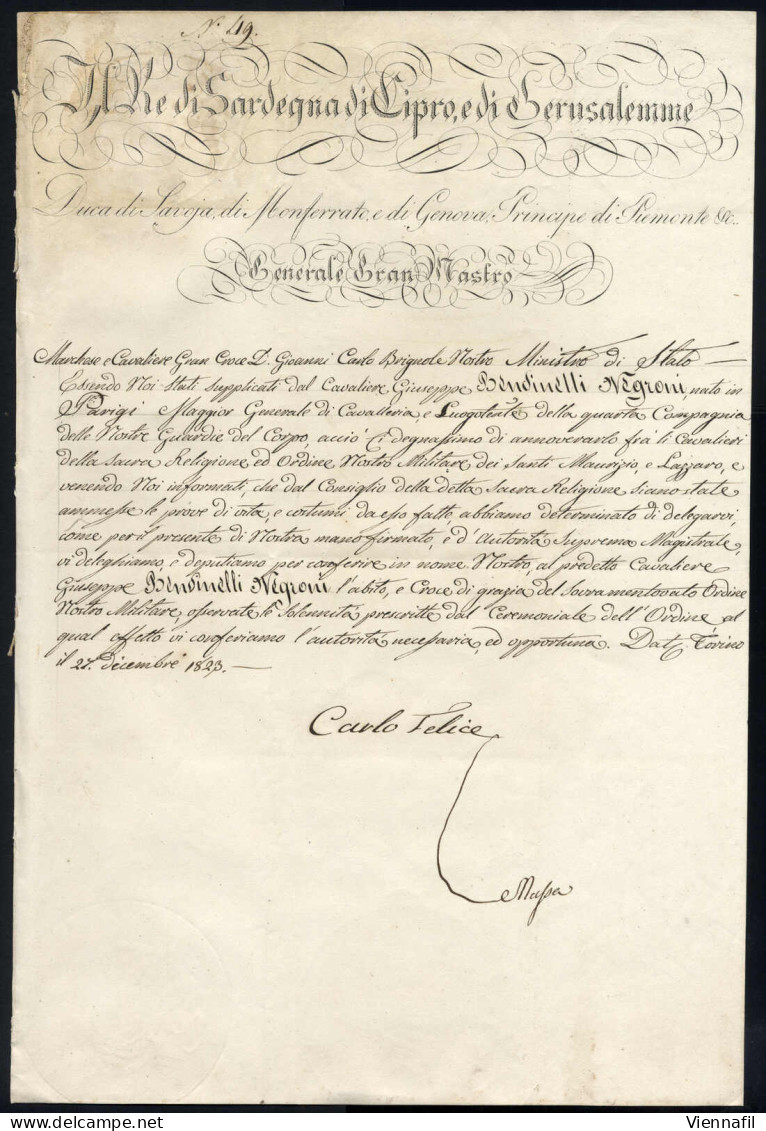 N.° 49.
Il Re di Sardegna di Cipro, e di Gerusalemme
Duca di Savoja, di Monferrato, e di Genova, Principe di Piemonte &c.
Generale Gran Mastro
Marchese e Cavaliere Gran Croce D. Gioanni Carlo Brignole Nostro Ministro di Stato —
Essendo Noi Stati supplicati dal Cavaliere Giuseppe Bendinelli Negroni, nato in
Parigi Maggior Generale di Cavalleria, e Luogotente della quarta Compagnia
delle Nostre Guardie del Corpo, acciò Ci degnassimo di annoverarlo frà li Cavalieri
della Sacra Religione ed Ordine Nostro Militare dei Santi Maurizio, e Lazzaro, e
venendo Noi informati, che dal Consiglio della detta Sacra Religione siano state
ammesse le prove di vita, e costumi da esso fatte, abbiamo determinato di delegarvi,
come per il presente di Nostra mano firmato, e d'Autorità Suprema Magistrale,
vi deleghiamo, e deputiamo per conferire in nome Nostro, al predetto Cavaliere
Giuseppe Bendinelli Negroni l'abito, e Croce di grazia del Sacramentovato Ordine
Nostro Militare, osservate le Solennità prescritte dal Ceremoniale dell'Ordine al
qual effetto vi conferiamo l'autorità necessaria, ed opportuna. Dat. Torino
il 27. decembre 1823. —
Carlo Felice
Massa
Viennafil